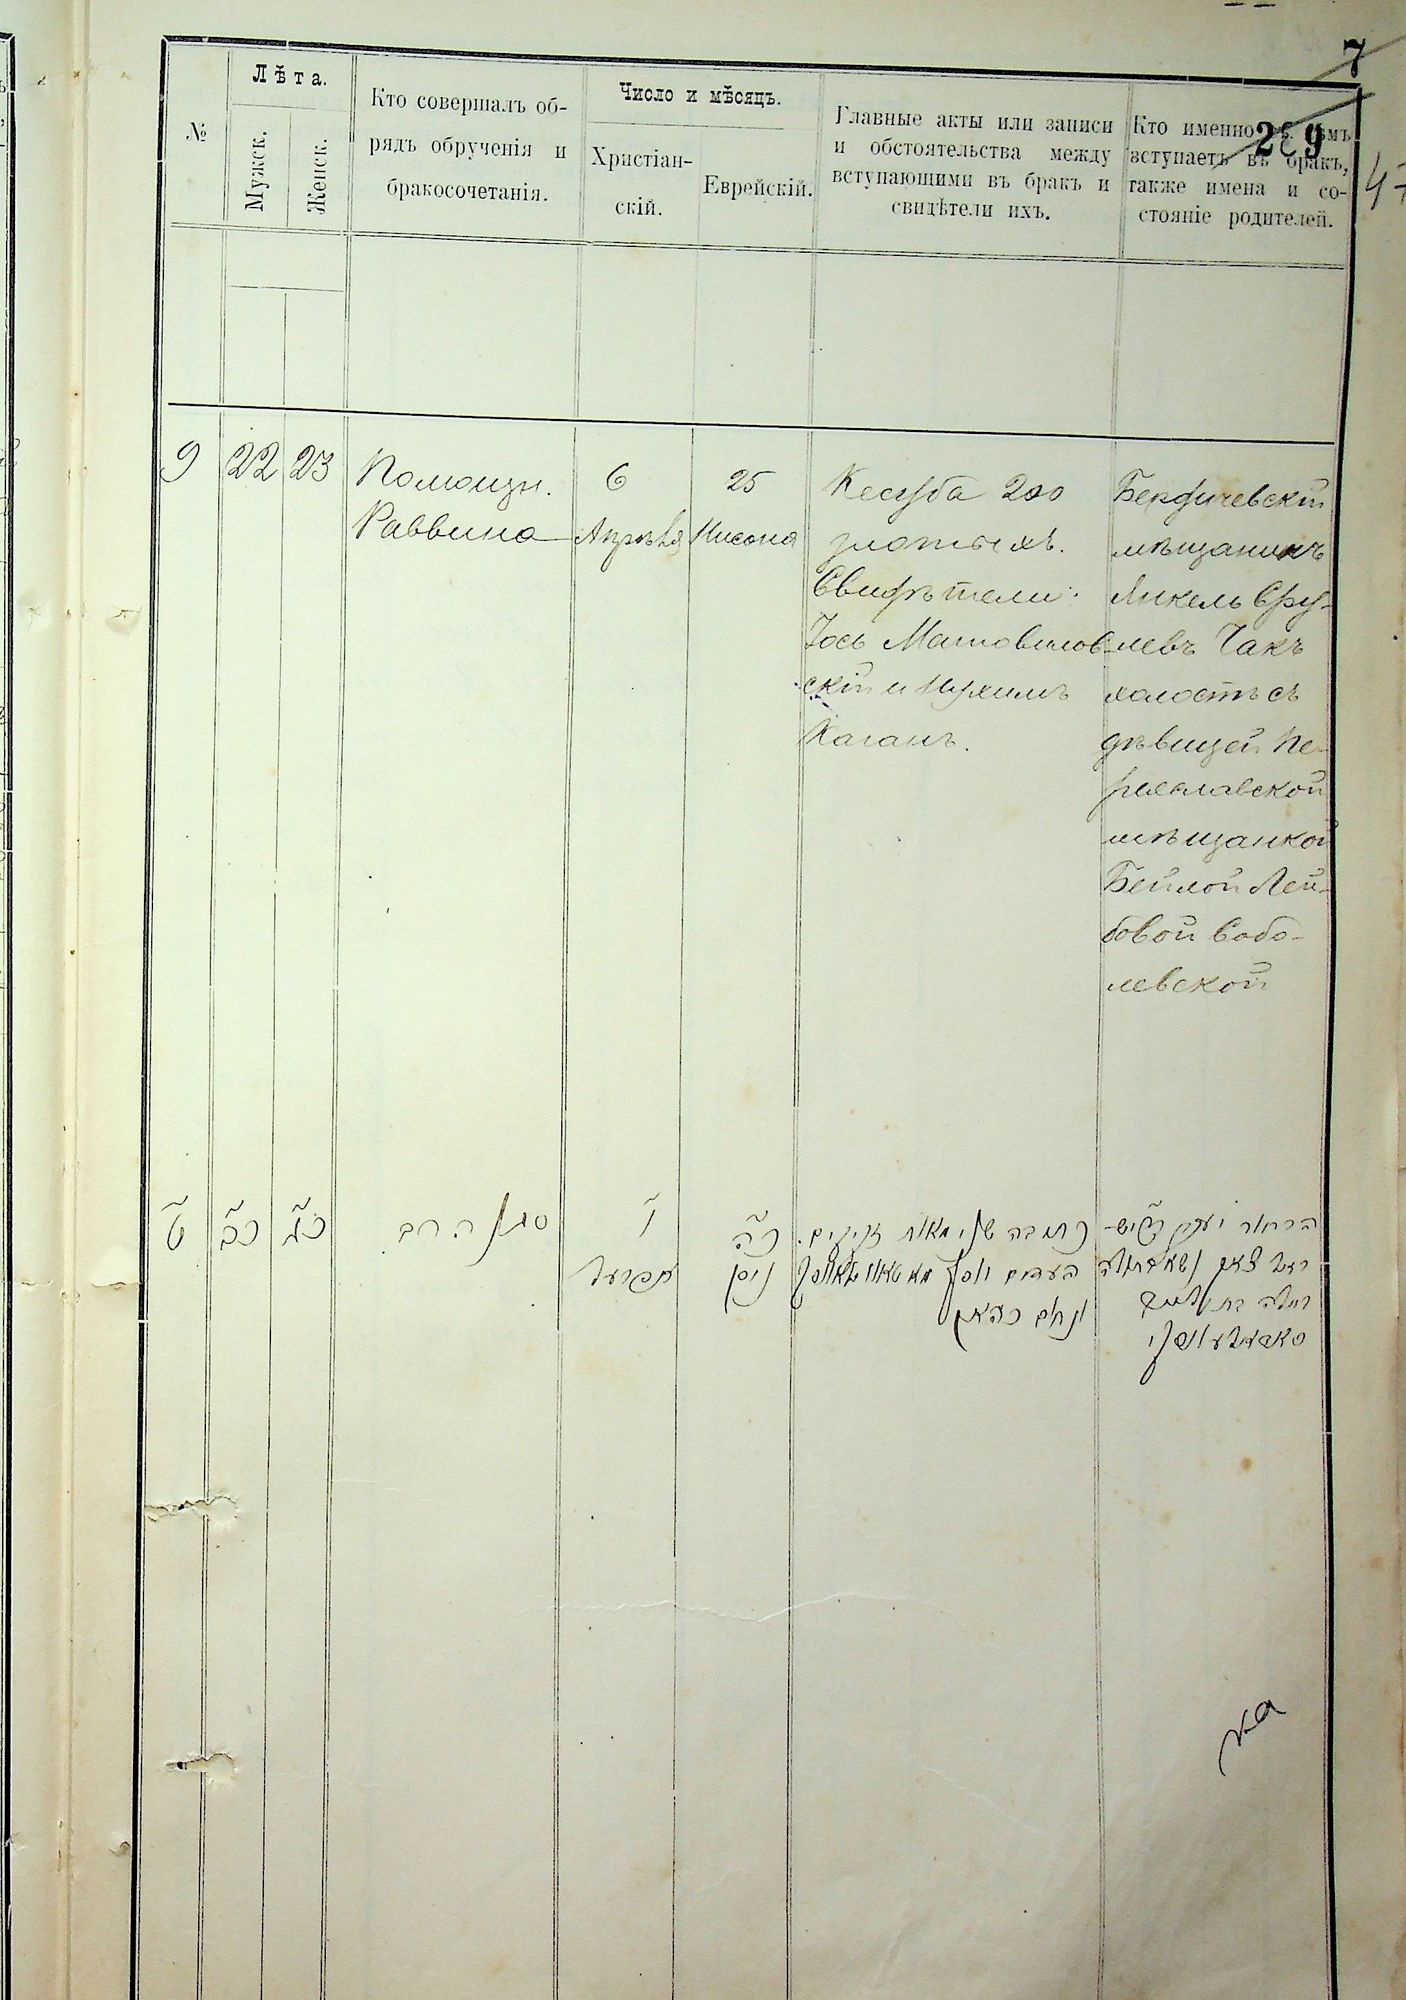 7
289
47
№
Лѣта.
Мужск.
Женск.
Кто совершалъ об-
рядъ обрученія и
бракосочетанія.
Число и мѣсяцъ.
Христіан-
скій.
Еврейскій.
Главные акты или записи
и обстоятельства между
вступающими въ бракъ и
свидѣтели ихъ.
Кто именно съ кѣмъ
вступаетъ въ бракъ,
также имена и со-
стояніе родителей.
9
22
23
Помощн.
Раввина
6
Апрѣля
25
Нисона
Кесуба 200
злотыхъ.
Свидѣтели:
Іось
скій и Нухимъ
Каганъ.
Бердичевскій
мѣщанинъ
Янкель Сру-
левъ Чакъ
холостъ съ
дѣвицей Пе-
реяславской
мѣщанкой
Бейлой Лей-
бовой Собо-
левской
ט
כב
כג
סגן הרב
ו
אפרעל
כה
ניסן
כתובה שני מאות זקוקים.
העדים יוסף
ונחום כהאן
הבחור יעקב
ביילה בת